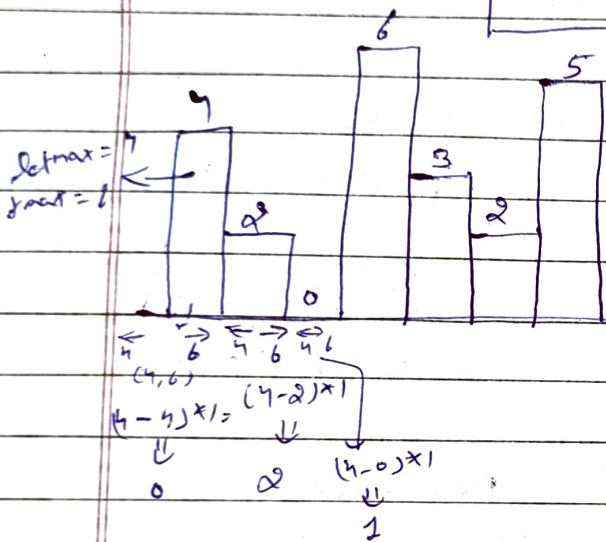 6
5
4
leftmax = 4
rmax = 6
3
2
2
0
4 6 4 6 4 6
(4,6)
(4-4)*1= (4-2)*1
(4-0)*1
0 2
1